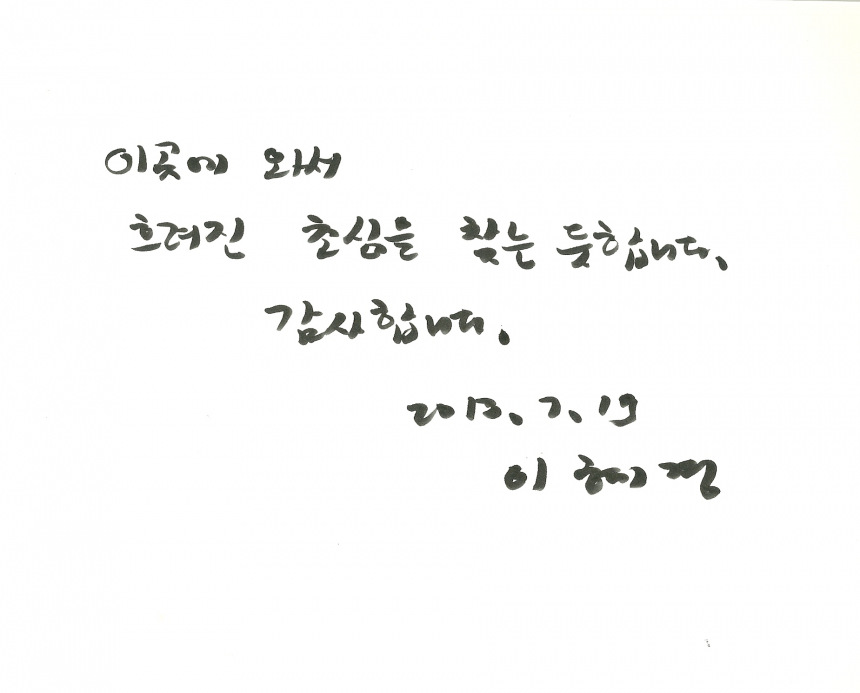 이곳에 와서
흐려진 초심을 찾는 듯합니다.
감사합니다.
2013. 7. 19
이혜경